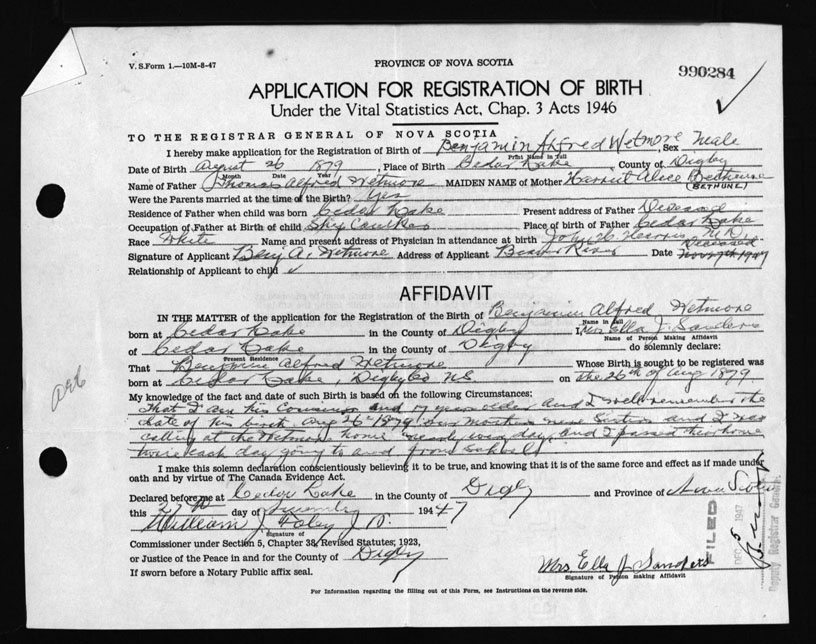 V. S. Form 1.—10M-8-47
PROVINCE OF NOVA SCOTIA
990284
APPLICATION FOR REGISTRATION OF BIRTH
Under the Vital Statistics Act, Chap. 3 Acts 1946
TO THE REGISTRAR GENERAL OF NOVA SCOTIA
I hereby make application for the Registration of Birth of Benjamin Alfred Wetmore Sex Male
Print Name in Full
Date of Birth August 26 1879, Place of Birth Cedar Lake County of Digby
Month Date Year
Name of Father Thomas Alfred Wetmore MAIDEN NAME of Mother Harriet Alice Bethune
(BETHUNE)
Were the Parents married at the time of the Birth? Yes
Residence of Father when child was born Cedar Lake Present address of Father Deceased
Occupation of Father at Birth of child Ship Caulker Place of birth of Father Cedar Lake
Race White Name and present address of Physician in attendance at birth John H. M.D. Deceased
Signature of Applicant Benj A. Wetmore Address of Applicant Beaver River Date Nov 7th 1947
Relationship of Applicant to child ✓
AFFIDAVIT
IN THE MATTER of the application for the Registration of Birth of Benjamin Alfred Wetmore
Name in Full
born at Cedar Lake in the County of Digby I, Mrs Ella J. Sanders
Name of Person Making Affidavit
of Cedar Lake in the County of Digby do solemnly declare:
Present Residence
That Benjamin Alfred Wetmore Whose Birth is sought to be registered was
born at Cedar Lake, Digby Co N.S. on The 26th of Aug 1879.
My knowledge of the fact and date of such Birth is based on the following Circumstances:
That I am his Cousin and year older and I well remember the
date of his birth Aug 26 - 1879. our mothers were Sisters and I was
calling at the Wetmore home nearly every day, and I passed their home
twice each day going to and from School
I make this solemn declaration conscientiously believing it to be true, and knowing that it is of the same force and effect as if made under
oath and by virtue of The Canada Evidence Act.
Declared before me at Cedar Lake in the County of Digby and Province of Nova Scotia
this 27th day of November 1947
William J. Foley J.P.
Signature of
Commissioner under Section 5, Chapter 38, Revised Statutes, 1923,
or Justice of the Peace in and for the County of Digby
If sworn before a Notary Public affix seal.
Mrs Ella J Sanders
Signature of Person making Affidavit
FILED
DEC 5 1947
Deputy Registrar General
For Information regarding the filling out of this Form, see Instructions on the reverse side.